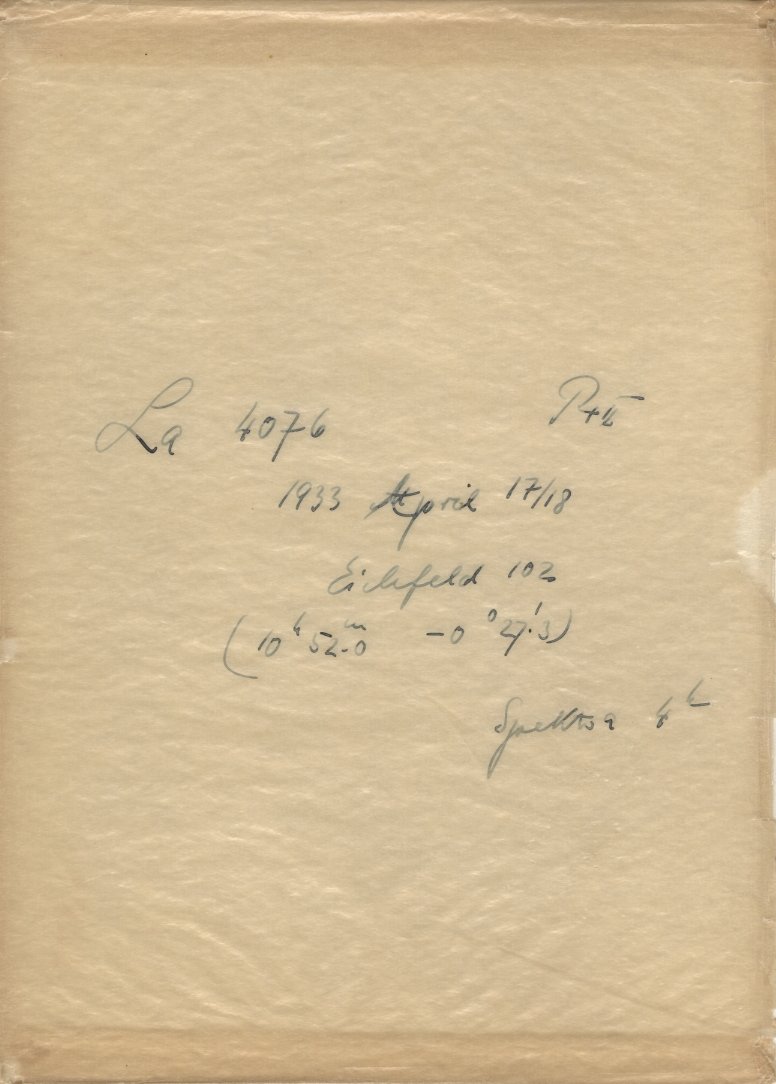 La 4076
1933 April 17/18
Eichfeld 102
(10ʰ 52ᵐ.0 -0° 27'.3)
Spektra 4ʰ